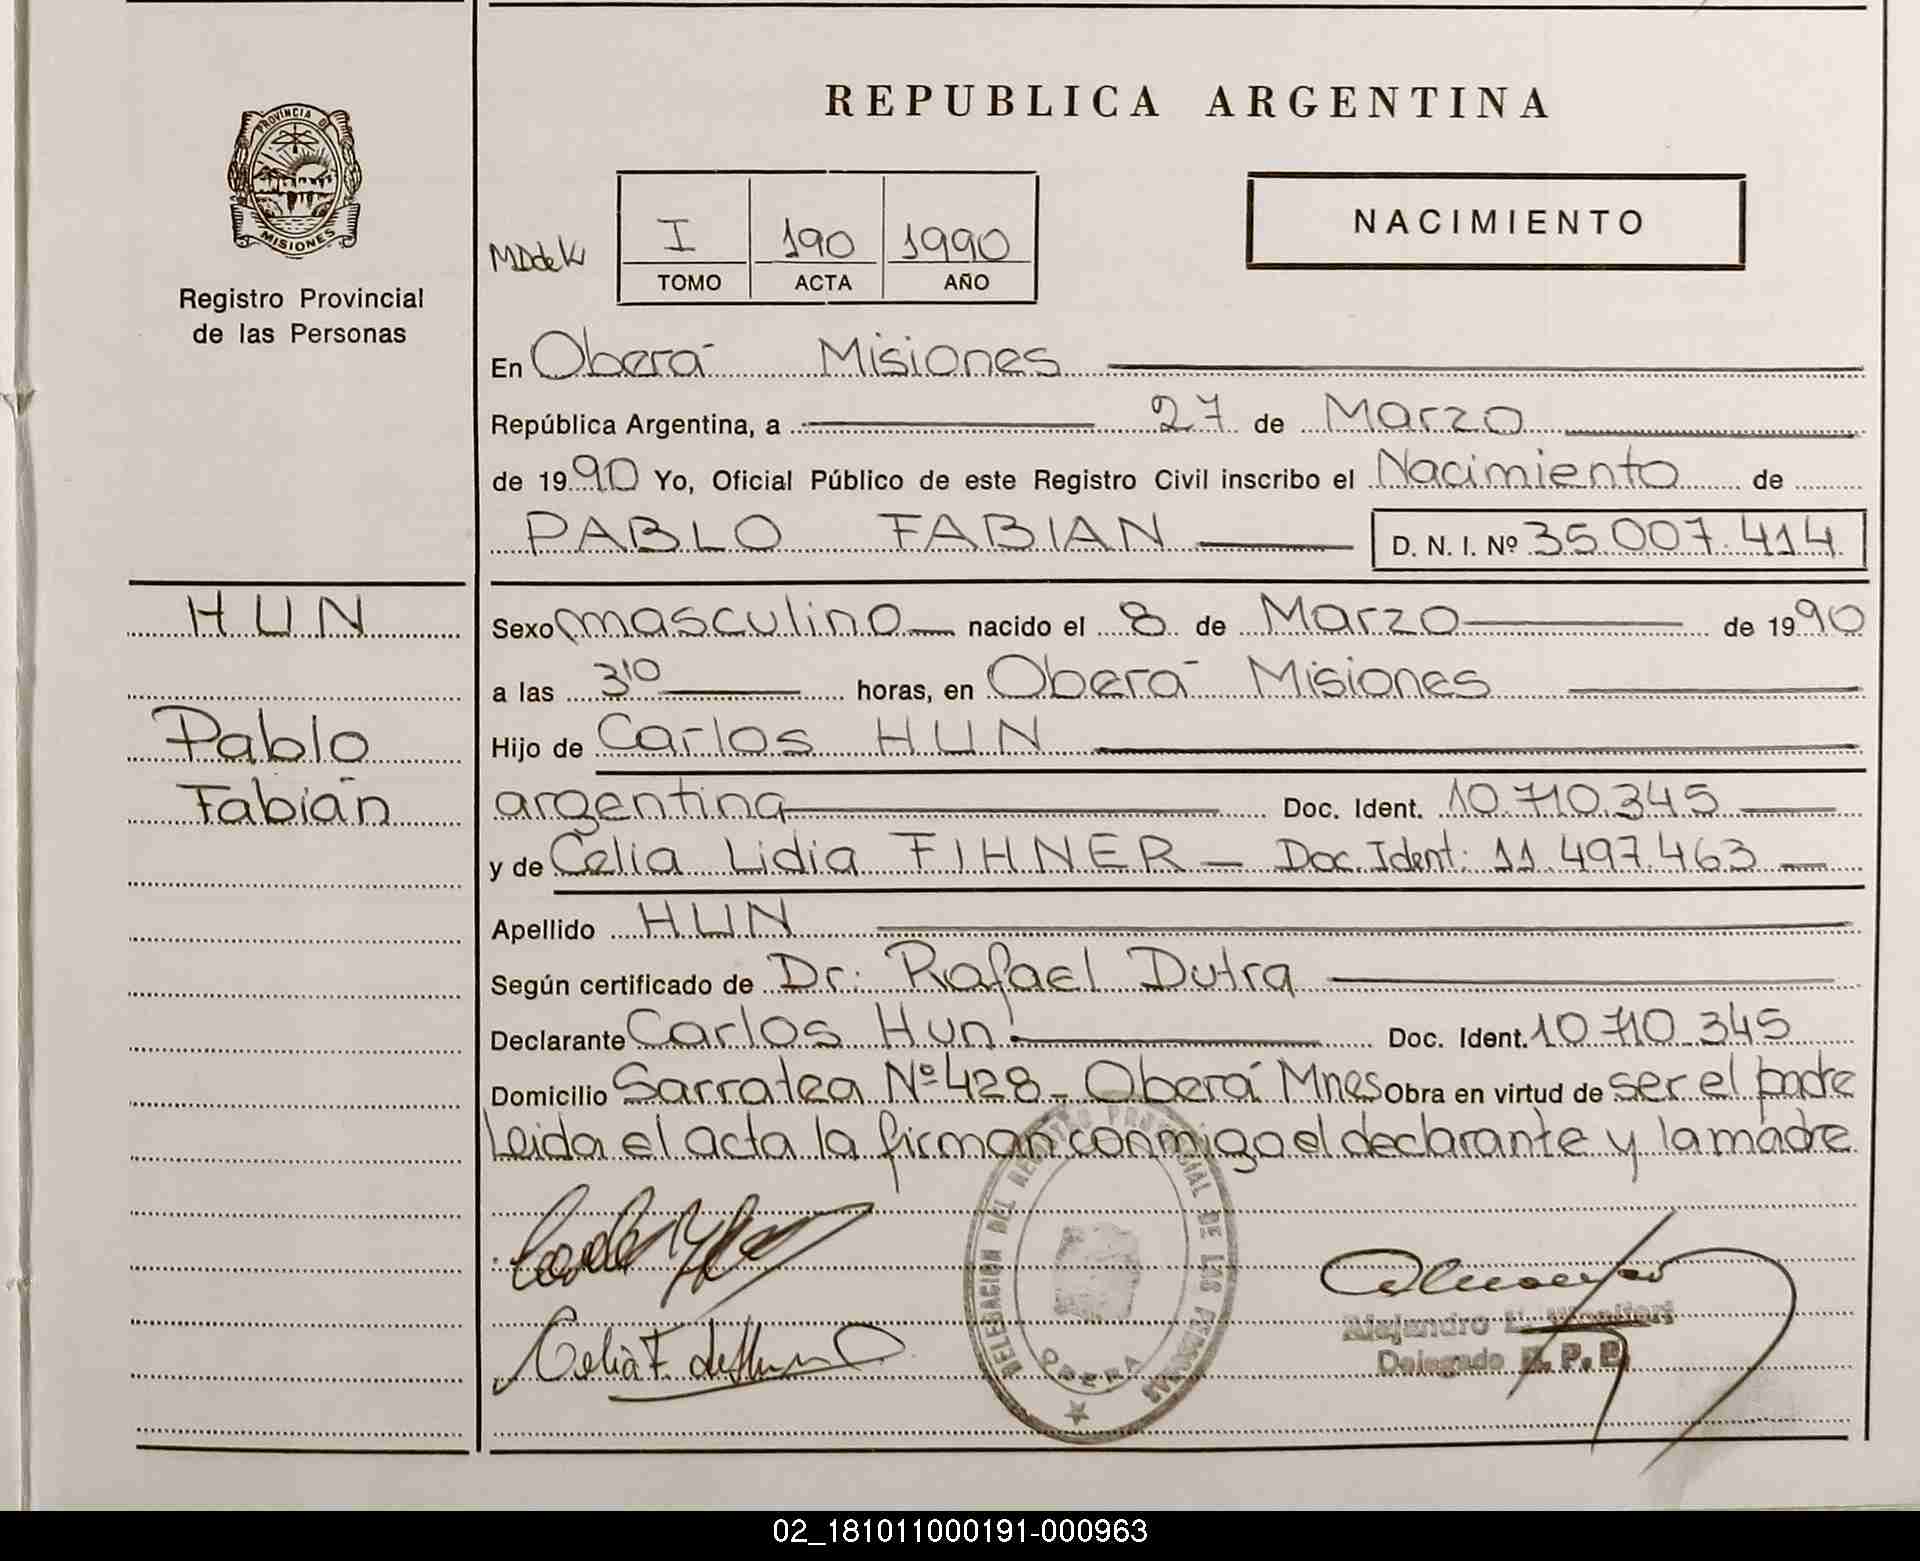 PROVINCIA DE
MISIONES
Registro Provincial
de las Personas
HUN
Pablo
Fabián
REPUBLICA ARGENTINA
I 190 1990
TOMO ACTA AÑO
NACIMIENTO
En Oberá Misiones
República Argentina, a 27 de Marzo
de 1990 Yo, Oficial Público de este Registro Civil inscribo el Nacimiento de
PABLO FABIAN D. N. I. Nº 35.007.414
Sexo masculino nacido el 8 de Marzo de 1990
a las 3'10 horas, en Oberá Misiones
Hijo de Carlos HUN
argentina Doc. Ident. 10.710.345
y de Celia Lidia FIHNER - Doc. Ident: 11.497.463
Apellido HUN
Según certificado de Dr: Rafael Dutra
Declarante Carlos Hun Doc. Ident. 10.710.345
Domicilio Sarratea Nº 428 - Oberá Mnes Obra en virtud de ser el padre
Leida el acta la firman conmigo el declarante y la madre
DELEGACION DEL REGISTRO PROVINCIAL DE LAS PERSONAS
OBERA
Celia F. de Hun
Alejandro
Delegado R. P. P.
02_181011000191-000963